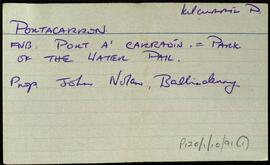 Kilcurnain P.
PORTACARRON
FNB PORT A' CARRAOIN. = PARK
OF THE WATER PAIL.
Prop. John Nolan, Ballinderry
P120/1/10/91(1)